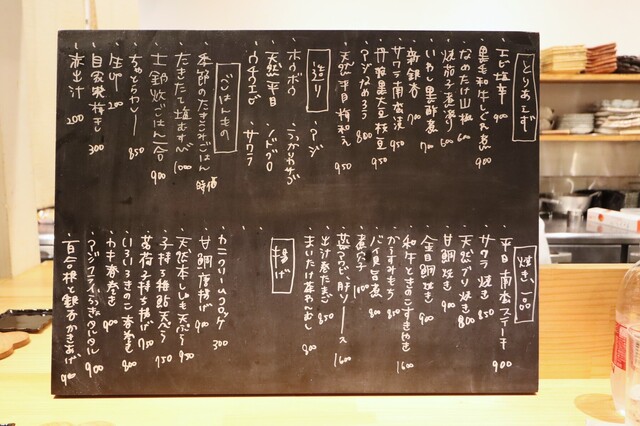 とりあえず
・エビ塩辛 900
・黒毛和牛しぐれ煮 900
・なめたけ山椒 600
・焼茄子煮浸り 600
・新銀杏 700
・いわし黒酢煮 700
・サワラ南蛮漬 950
・丹波黒大豆枝豆 950
・アジなめろう 800
・天然平目梅和え 950
造り
・アジ
・うっかりカサゴ
・ノドグロ
・サワラ
・ホウボウ
・天然平目
・ウチワエビ
ごはんもの
・季節のたきこみごはん 時価
・たきたて塩むすび 1000
・土鍋炊ごはん一合 900
・ちょっとカレー 850
・生卵 200
・自家製梅干し 300
・赤出汁 200
焼き、一品
・平目南蛮ステーキ 900
・サワラ焼き 850
・天然ブリ焼き 800
・甘鯛焼き 900
・金目鯛焼き 900
・和牛ときのこすきやき 1600
・からすみもち 850
・バイ貝旨煮 800
・煮穴子 1600
・蒸アワビ、肝ソース 1600
・出汁巻たまご 850
・まいたけ茶わんむし 800
揚げ
・カニクリームコロッケ 300
・甘鯛唐揚げ 900
・天然本しめじ天ぷら 950
・子持ち稚鮎天ぷら 750
・茗荷子持ち揚げ 750
・いろいろきのこ春巻き 800
・カキ春巻き 900
・アジフライ
・百合根と銀杏かきあげ 900